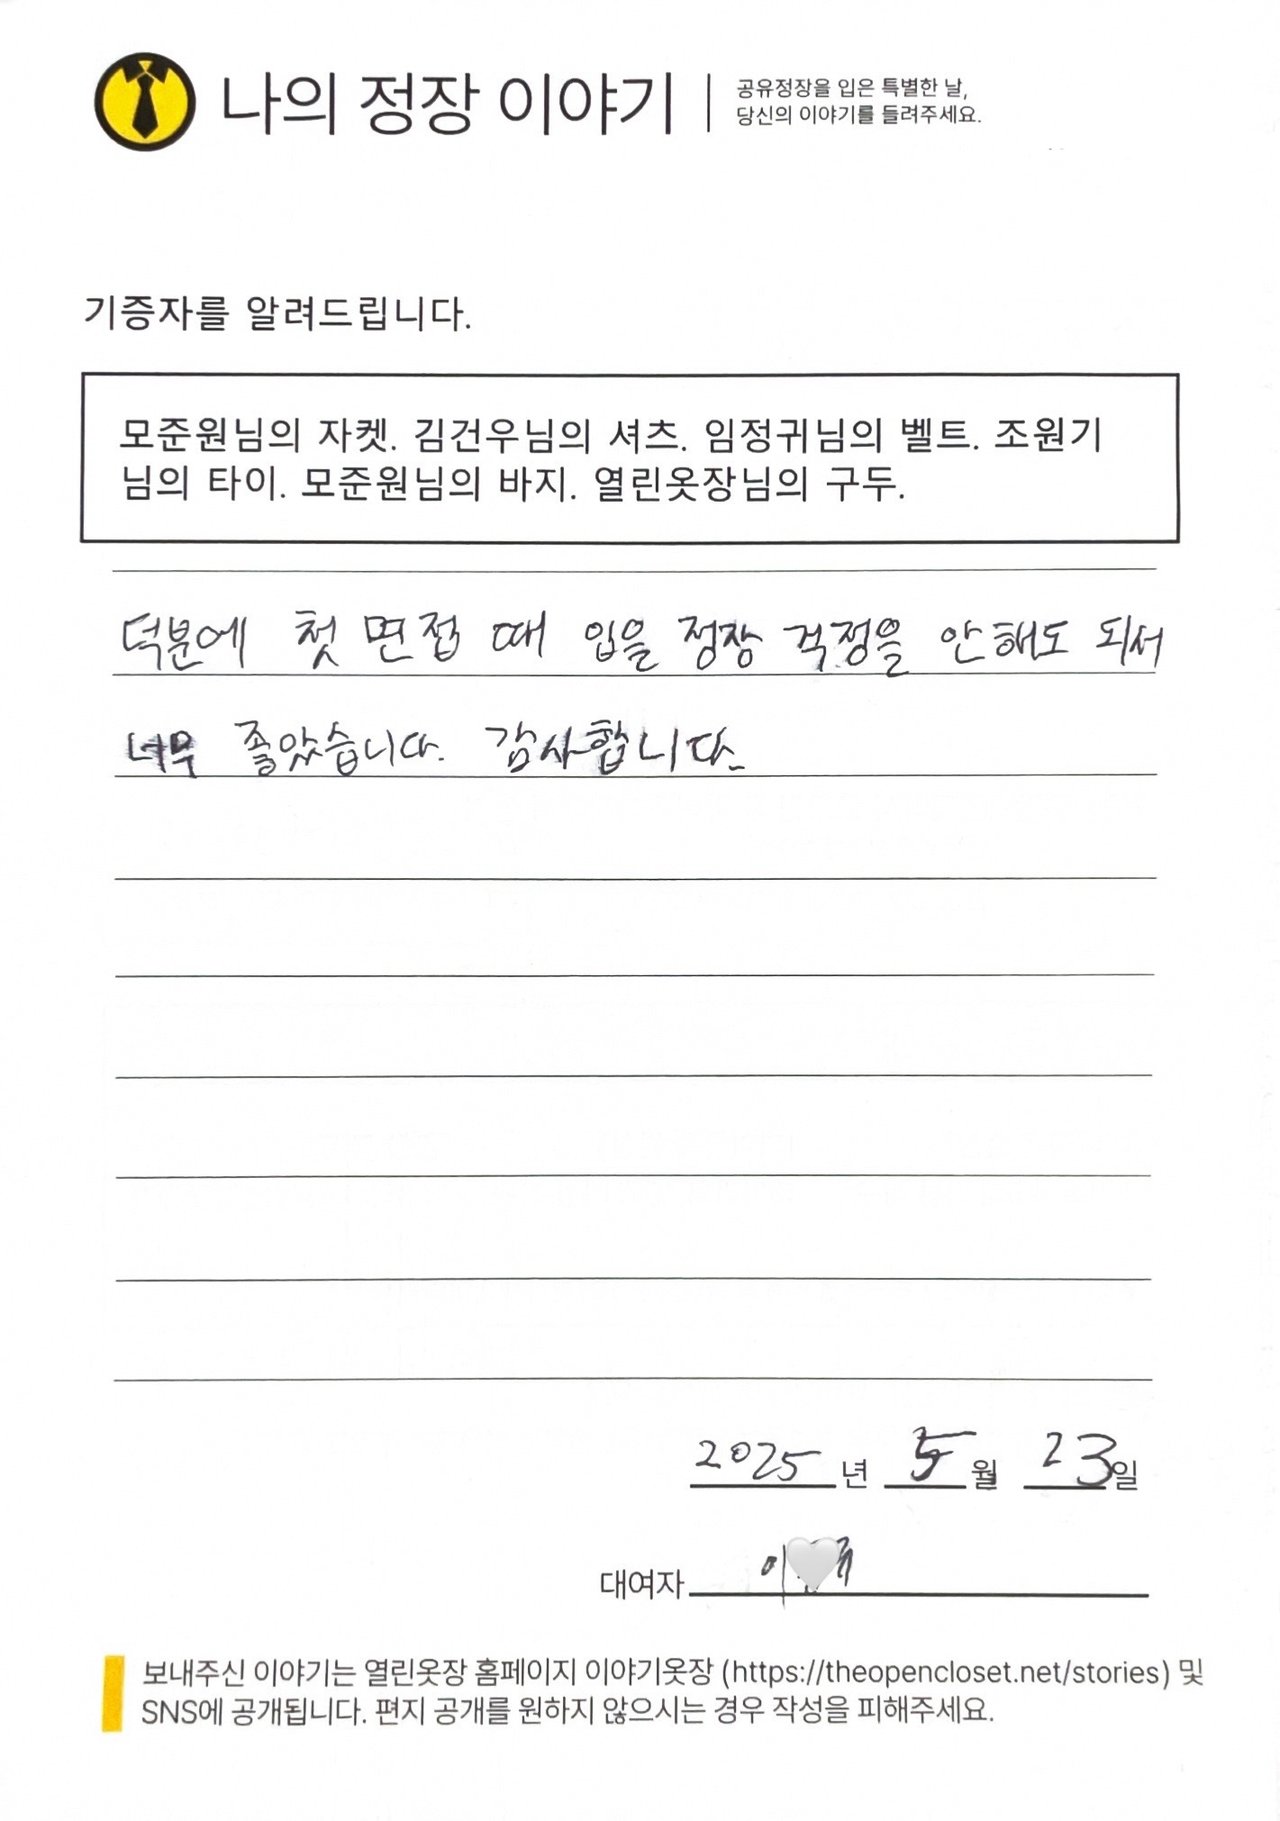 나의 정장 이야기
공유정장을 입은 특별한 날,
당신의 이야기를 들려주세요.
기증자를 알려드립니다.
모준원님의 자켓. 김건우님의 셔츠. 임정귀님의 벨트. 조원기
님의 타이. 모준원님의 바지. 열린옷장님의 구두.
덕분에 첫 면접 때 입을 정장 걱정을 안해도 되서
너무 좋았습니다. 감사합니다.
2025년 5월 23일
대여자 이
보내주신 이야기는 열린옷장 홈페이지 이야기옷장 (https://theopencloset.net/stories) 및
SNS에 공개됩니다. 편지 공개를 원하지 않으시는 경우 작성을 피해주세요.